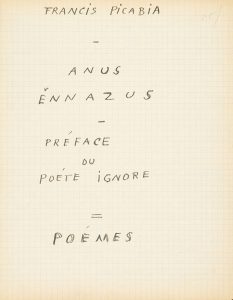 FRANCIS PICABIA
-
ANUS
ËNNAZUS
-
PRÉFACE
DU
POÉTE IGNORE
=
POÉMES